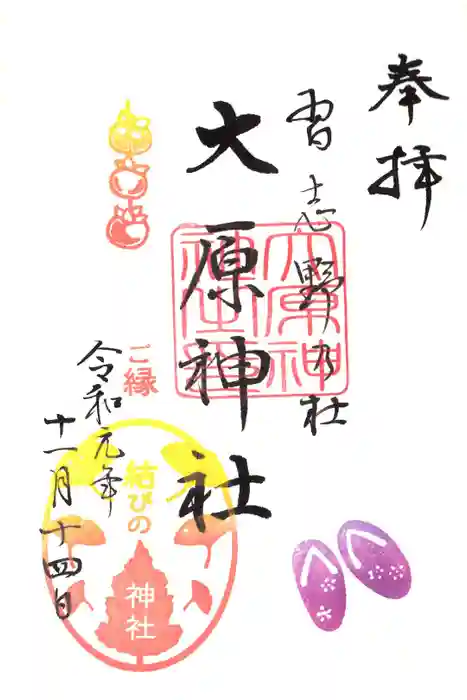 奉拝
習志野乃社
大原神社
大原神社
ご縁
結びの
神社
令和元年
十一月十四日